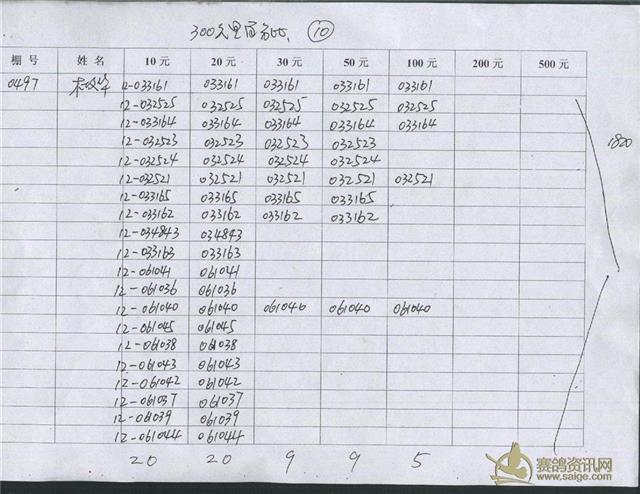 300公里 ⑩
棚号 姓名 10元 20元 30元 50元 100元 200元 500元
0497 12-033161 033161 033161 033161 033161
12-032525 032525 032525 032525 032525
12-033164 033164 033164 033164 033164
12-032523 032523 032523 032523
12-032524 032524 032524 032524
12-032521 032521 032521 032521 032521
12-033165 033165 033165 033165
12-033162 033162 033162 033162
12-034843 034843
12-033163 033163
12-061041 061041
12-061036 061036
12-061040 061040 061040 061040 061040
12-061045 061045
12-061038 061038
12-061043 061043
12-061042 061042
12-061037 061037
12-061039 061039
12-061044 061044
20 20 9 9 5
1820
赛鸽资讯网
www.saige.com